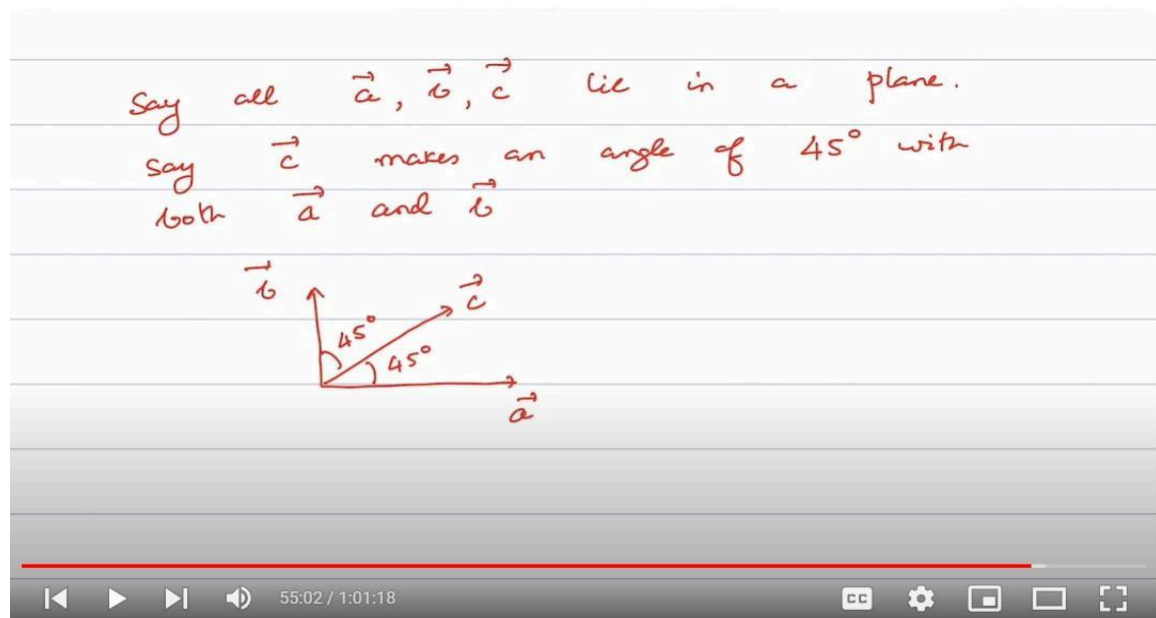 Say all a⃗, b⃗, c⃗ lie in a plane.
Say c⃗ makes an angle of 45° with
both a⃗ and b⃗
b⃗
c⃗
45°
45°
a⃗
55:02 / 1:01:18
CC